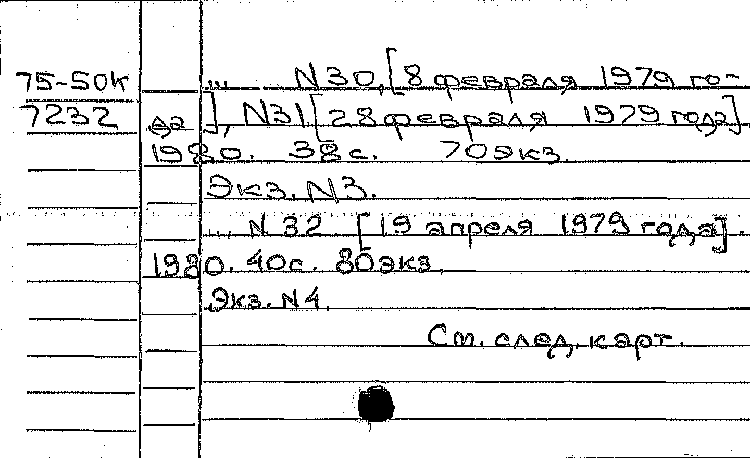 75-50к ... N30,[8 февраля 1979 го-
7232 да], N31[28 февраля 1979 года]
1980. 38с. 70экз.
Экз. N3.
... N 32 [19 апреля 1979 года].
1980. 40с. 80экз.
Экз. N4.
См. след. карт.